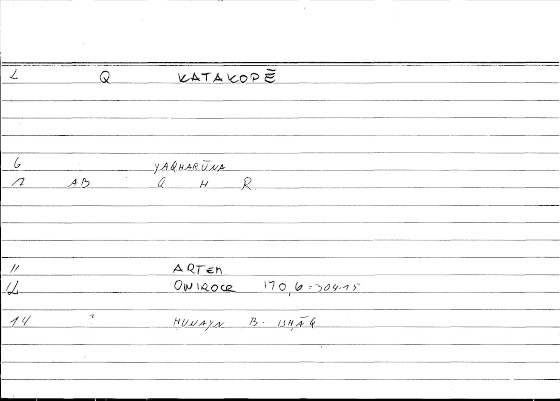 L Q KATAKOPĒ
6 YAQHARŪNA
1 AB Q H R
11 ARTEM
12 ONIROCR 170,6=304.15
14 " ḤUNAYN B. ISḤĀQ